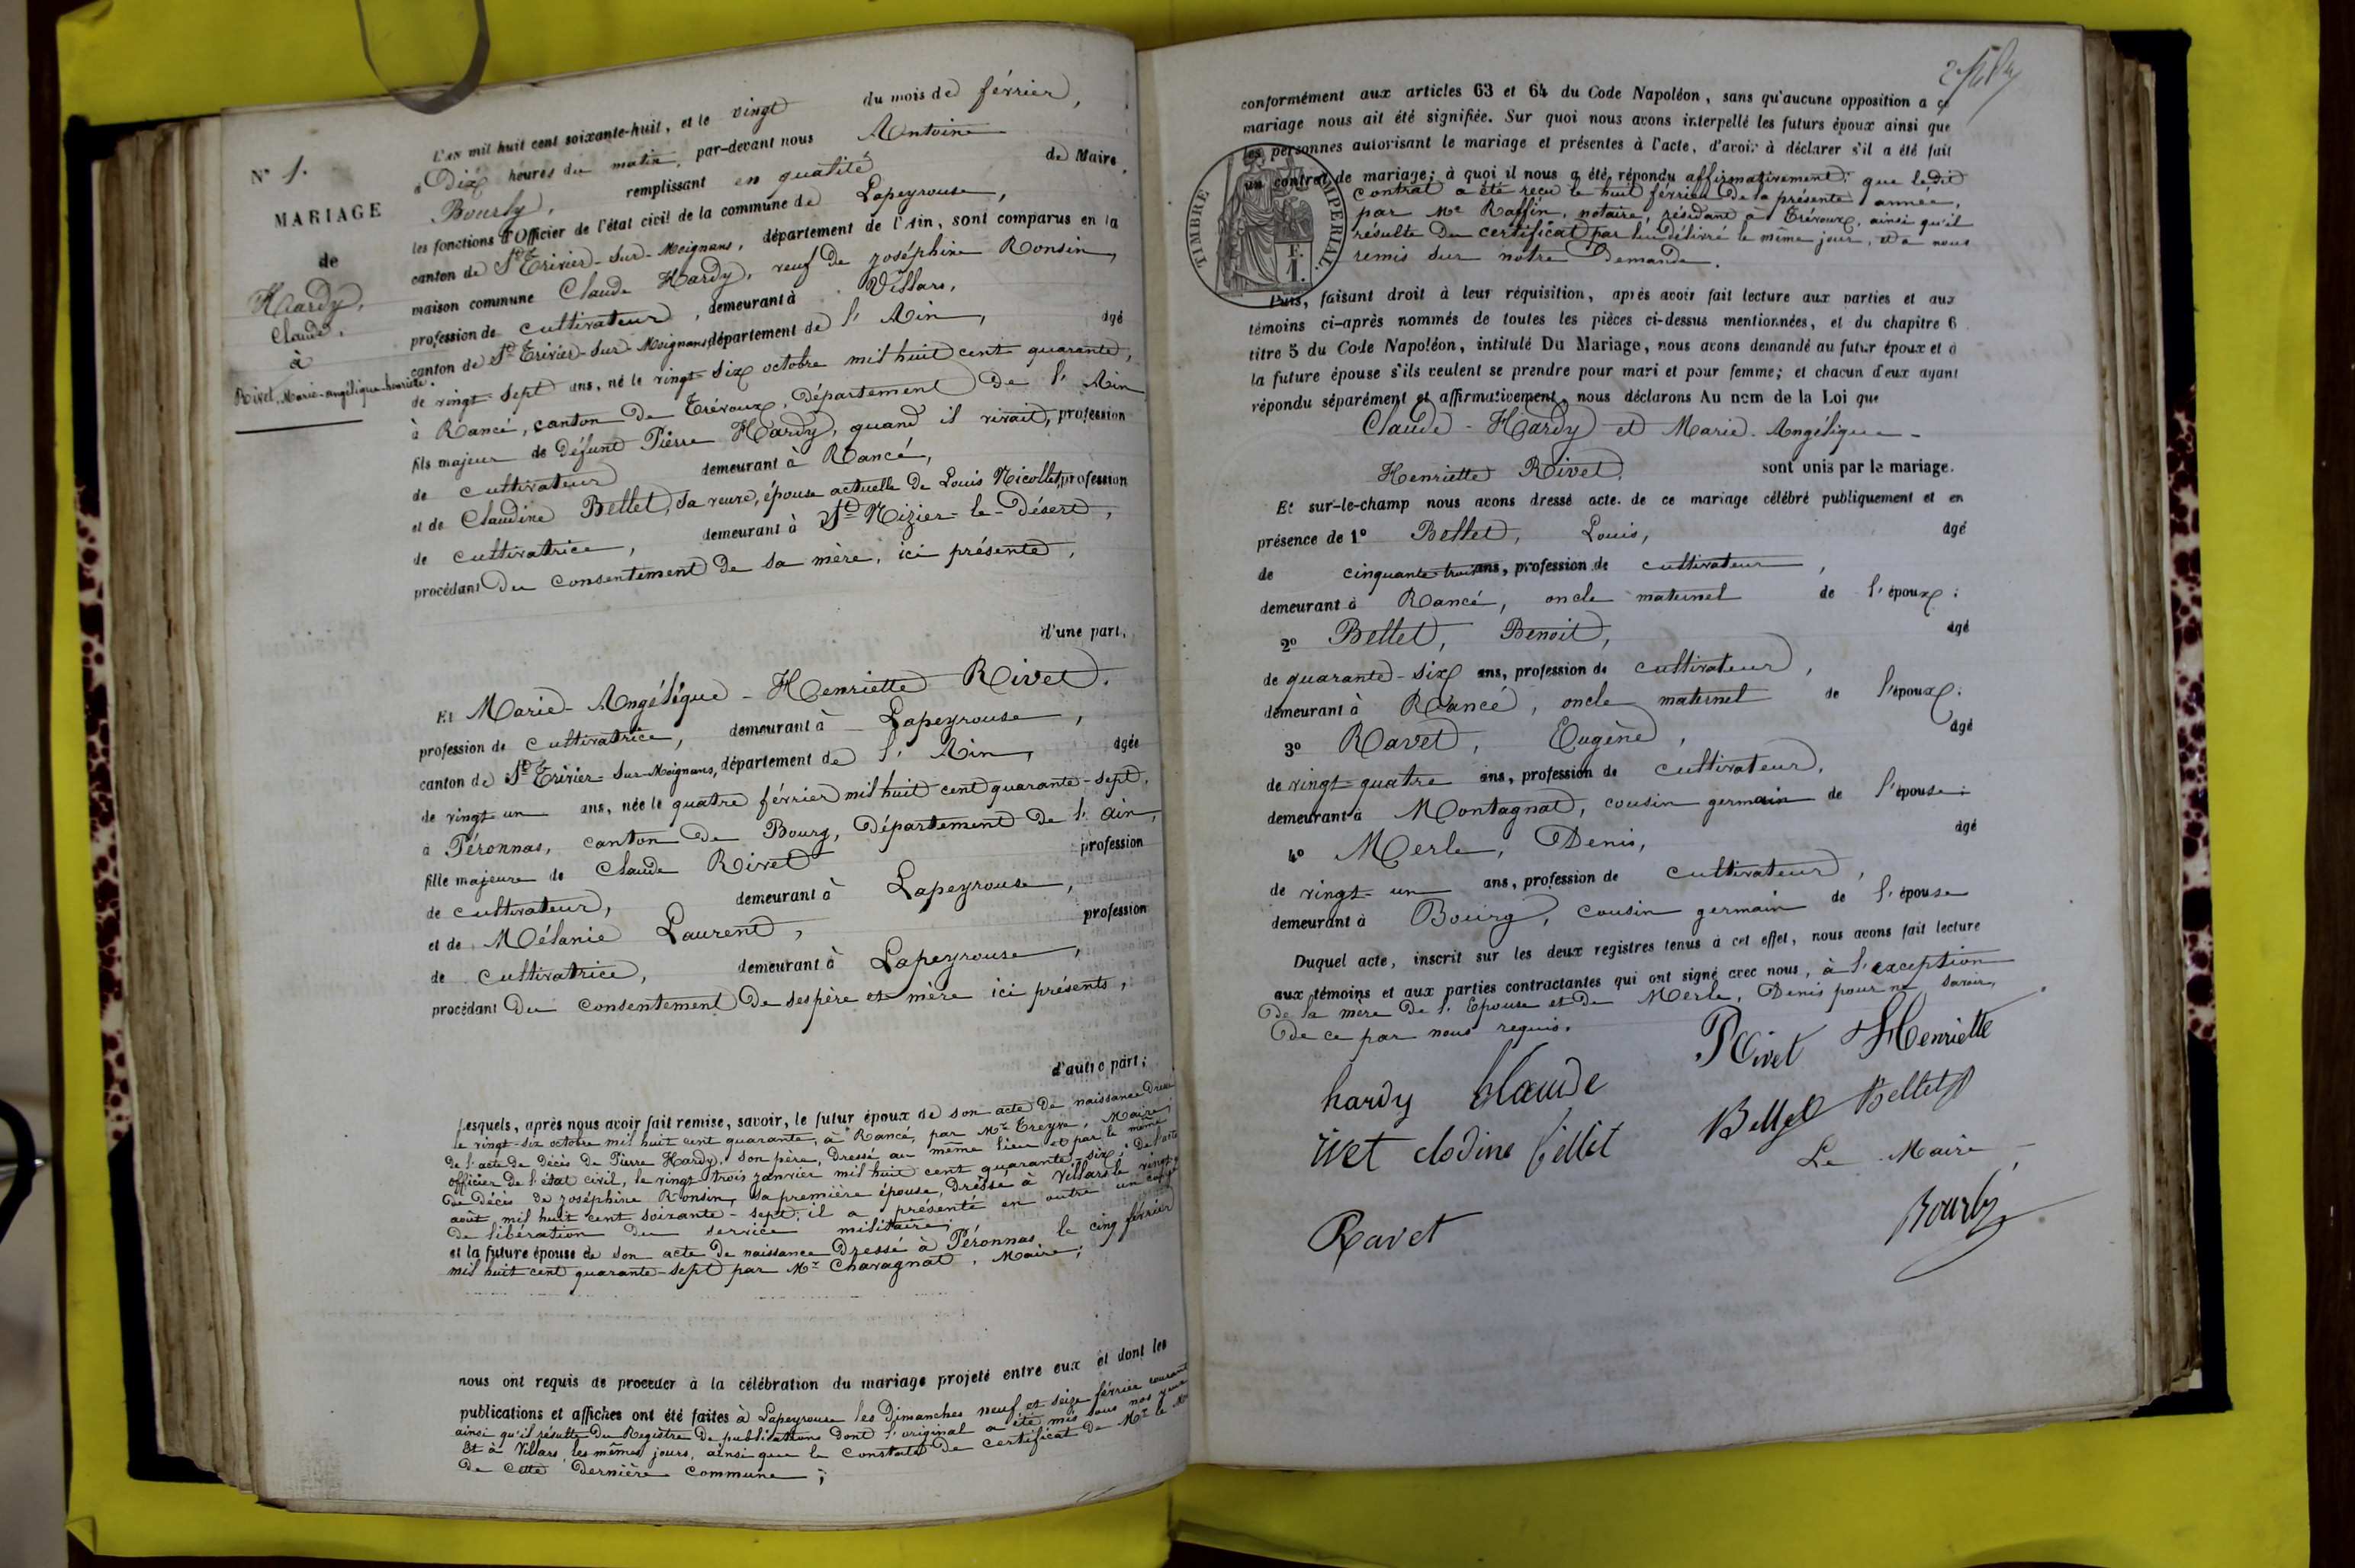 N° 1.
MARIAGE
de
Hardy,
Claude.
à
Rivet, Marie-angélique-henriette.
L'AN mil huit cent soixante-huit, et le vingt du mois de février,
à Dix heures du matin, par-devant nous Antoine
Bourly, remplissant en qualité de Maire,
les fonctions d'Officier de l'état civil de la commune de Lapeyrouse,
canton de St Trivier-sur-Moignans, département de l'Ain, sont comparus en la
maison commune Claude Hardy, veuf de Joséphine Ronsin,
profession de cultivateur, demeurant à Villars,
canton de St Trivier-sur-Moignans, département de l'Ain, âgé
de vingt-sept ans, né le vingt-six octobre mil huit cent quarante,
à Rancé, canton de Trévoux, Département de l'Ain
fils majeur de défunt Pierre Hardy, quand il vivait, profession
de cultivateur demeurant à Rancé,
et de Claudine Bellet, sa veuve, épouse actuelle de Louis Nicollet, profession
de cultivatrice, demeurant à St Nizier-le-Désert,
procédant Du consentement de sa mère, ici présente,
d'une part,
Et Marie-Angélique-Henriette Rivet.
profession de cultivatrice, demeurant à Lapeyrouse,
canton de St Trivier-sur-Moignans, département de l'Ain, âgée
de vingt un ans, née le quatre février mil huit cent quarante-sept,
à Péronnas, canton de Bourg, Département de l'ain,
fille majeure de Claude Rivet profession
de cultivateur, demeurant à Lapeyrouse,
et de Mélanie Laurent, profession
de cultivatrice, demeurant à Lapeyrouse,
procédant Du consentement de ses père et mère ici présents,
d'autre part;
Lesquels, après nous avoir fait remise, savoir, le futur époux de son acte de naissance Dressé
le vingt-six octobre mil huit cent quarante, à Rancé, par Mr Treyve, Maire;
de l'acte de décès de Pierre Hardy, son père, dressé au même lieu et par le même
officier de l'état civil, le vingt trois janvier mil huit cent quarante-six; De l'acte
de décès de Joséphine Ronsin, sa première épouse, dressé à Villars le vingt
août mil huit cent soixante-sept; il a présenté en outre un congé
de libération du service militaire;
et la future épouse de son acte de naissance Dressé à Péronnas, le cinq février
mil huit cent quarante-sept par Mr Chavagnat, Maire;
nous ont requis de procéder à la célébration du mariage projeté entre eux et dont les
publications et affiches ont été faites à Lapeyrouse les Dimanches neuf et seize février courant
ainsi qu'il résulte du Registre de publications dont l'original a été mis sous nos yeux
Et à Villars, les mêmes jours, ainsi que le constate de certificat de Mr le
de cette dernière commune;
conformément aux articles 63 et 64 du Code Napoléon, sans qu'aucune opposition à ce
mariage nous ait été signifiée. Sur quoi nous avons interpellé les futurs époux ainsi que
les personnes autorisant le mariage et présentes à l'acte, d'avoir à déclarer s'il a été fait
un contrat de mariage; à quoi il nous a été répondu affirmativement; que ledit
contrat a été reçu le huit février de la présente année,
par Me Raffin, notaire, résidant à Trévoux, ainsi qu'il
résulte du certificat par lui délivré le même jour, et à nous
remis sur notre demande.
TIMBRE IMPERIAL.
F.
1.
Puis, faisant droit à leur réquisition, après avoir fait lecture aux parties et aux
témoins ci-après nommés de toutes les pièces ci-dessus mentionnées, et du chapitre 6
titre 5 du Code Napoléon, intitulé Du Mariage, nous avons demandé au futur époux et à
la future épouse s'ils veulent se prendre pour mari et pour femme; et chacun d'eux ayant
répondu séparément et affirmativement, nous déclarons Au nom de la Loi que
Claude-Hardy et Marie-Angélique-
Henriette Rivet sont unis par le mariage.
Et sur-le-champ nous avons dressé acte de ce mariage célébré publiquement et en
présence de 1° Bellet, Louis, âgé
de cinquante-trois ans, profession de cultivateur,
demeurant à Rancé, oncle maternel de l'époux;
2° Bellet, Benoit, âgé
de quarante-six ans, profession de cultivateur,
demeurant à Rancé, oncle maternel de l'époux;
3° Ravet, Eugène, âgé
de vingt-quatre ans, profession de cultivateur,
demeurant à Montagnat, cousin germain de l'épouse;
4° Merle, Denis, âgé
de vingt-un ans, profession de cultivateur,
demeurant à Bourg, cousin germain de l'épouse
Duquel acte, inscrit sur les deux registres tenus à cet effet, nous avons fait lecture
aux témoins et aux parties contractantes qui ont signé avec nous, à l'exception
De la mère de l'Epouse et de Merle, Denis pour ne savoir,
De ce par nous requis.
Rivet Henriette
hardy Claude
Bellet Bellet
rivet clodine billet
Le Maire,
Ravet
Bourly